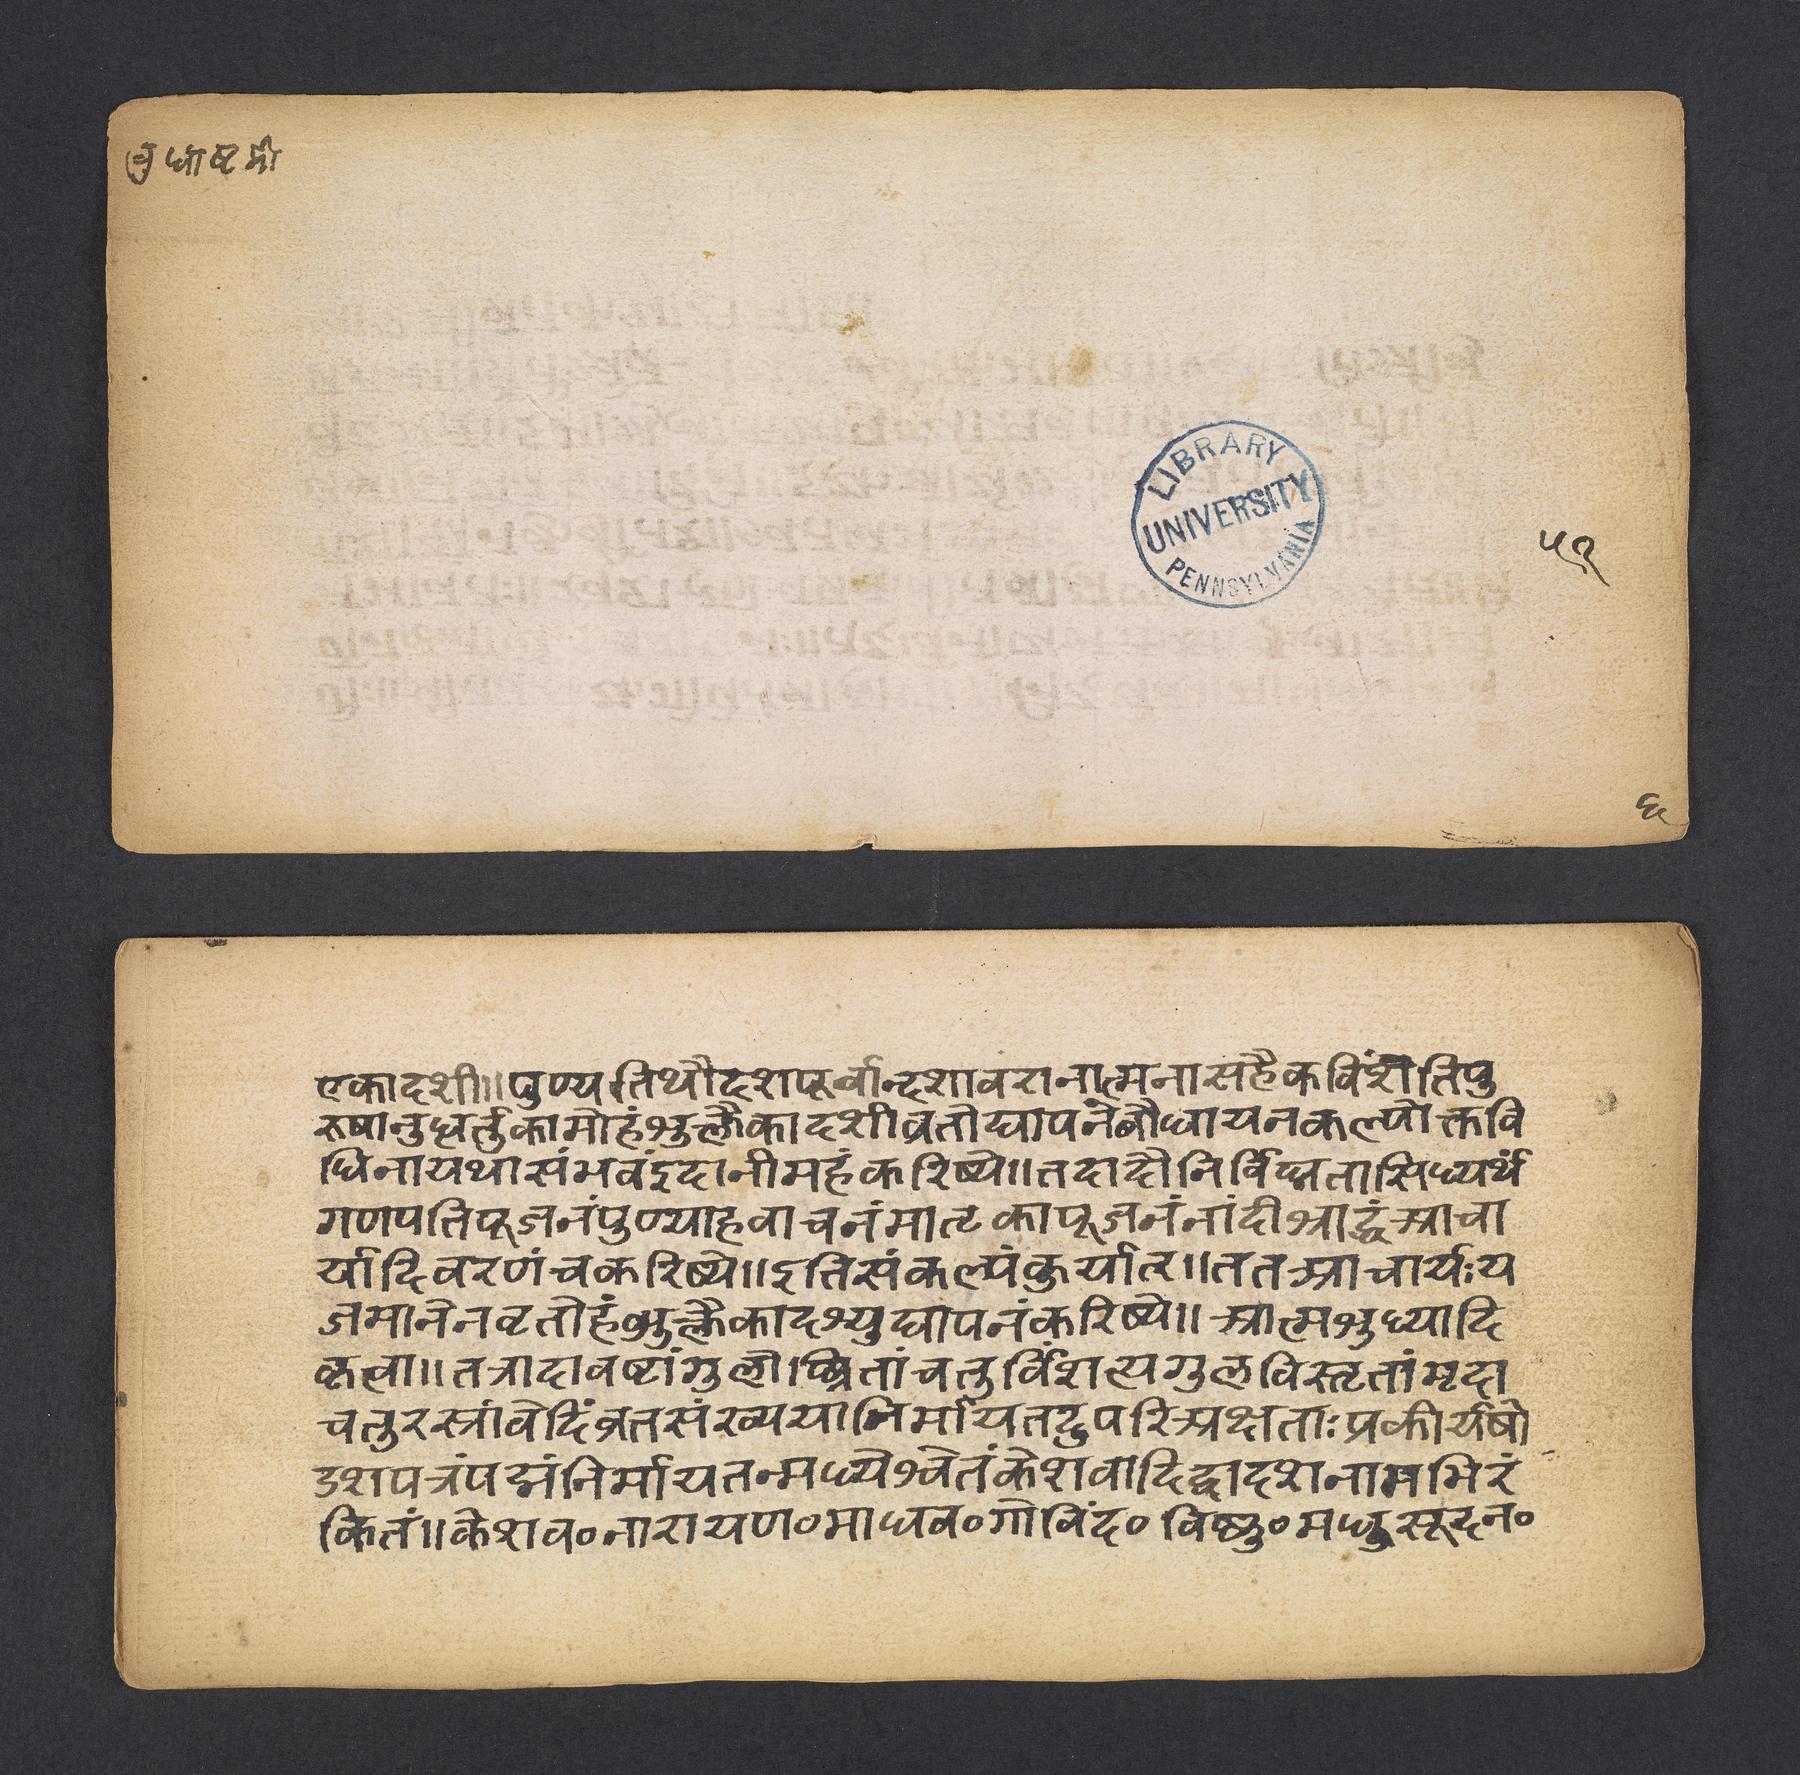 बुधाष्टमी
LIBRARY
UNIVERSITY
PENNSYLVANIA
५९
६
एकादशी॥पुण्यतिथौदशपूर्वान्दशावरानात्मनासहैकविंशतिपु
रूषानुद्धर्तुकामोहंशुक्लैकादशीव्रतोद्यापनंबौधायनकल्पोक्तवि
धिनायथासंभवंइदानीमहंकरिष्ये॥तदादौनिर्विघ्नतासिध्यर्थं
गणपतिपूजनंपुण्याहवाचनंमातृकापूजनंनांदीश्राद्धंआचा
र्यादिवरणंचकरिष्ये॥इतिसंकल्पंकुर्यात्॥ततआचार्यःय
जमानेनवृतोहंशुक्लैकादश्युद्यापनंकरिष्ये॥आत्मशुध्यादि
कृत्वा॥तत्रादावष्टांगुलोच्छ्रितांचतुर्विंशत्यगुलविस्तृतांमृदा
चतुरस्त्रांवेदिंव्रतसंख्ययानिर्मायतदुपरिअक्षताःप्रकीर्यषो
डशपत्रंपद्मंनिर्मायतन्मध्येश्वेतंकेशवादिद्वादशनामभिरं
कितं॥केशव०नारायण०माधव०गोविंद०विष्णु०मधुसूदन०